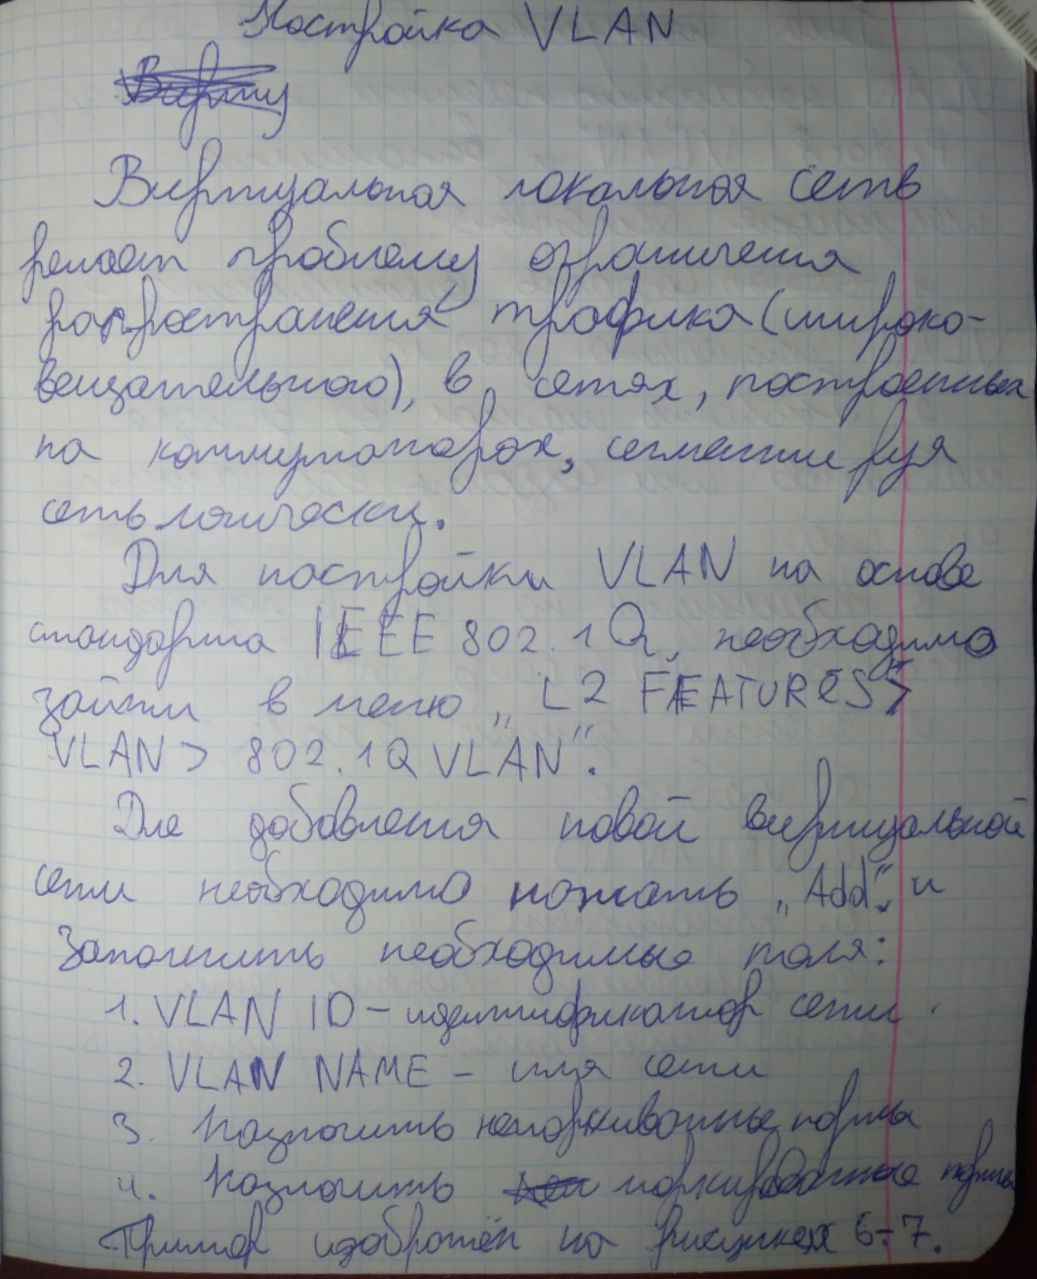 Настройка VLAN
Виртуальная локальная сеть
решает проблему ограничения
распространения трафика (широко-
вещательного), в сетях, построенных
на коммутаторах, сегментируя
сеть логически.
Для настройки VLAN на основе
стандарта IEEE 802.1Q, необходимо
зайти в меню „L2 FEATURES>
VLAN> 802.1Q VLAN“.
Для добавления новой виртуальной
сети необходимо нажать „Add“. и
Заполнить необходимые поля:
1. VLAN ID – идентификатор сети.
2. VLAN NAME – имя сети
3. Назначить немаркированные порты
4. Назначить маркированные порты
Пример изображён на рисунках 6-7.